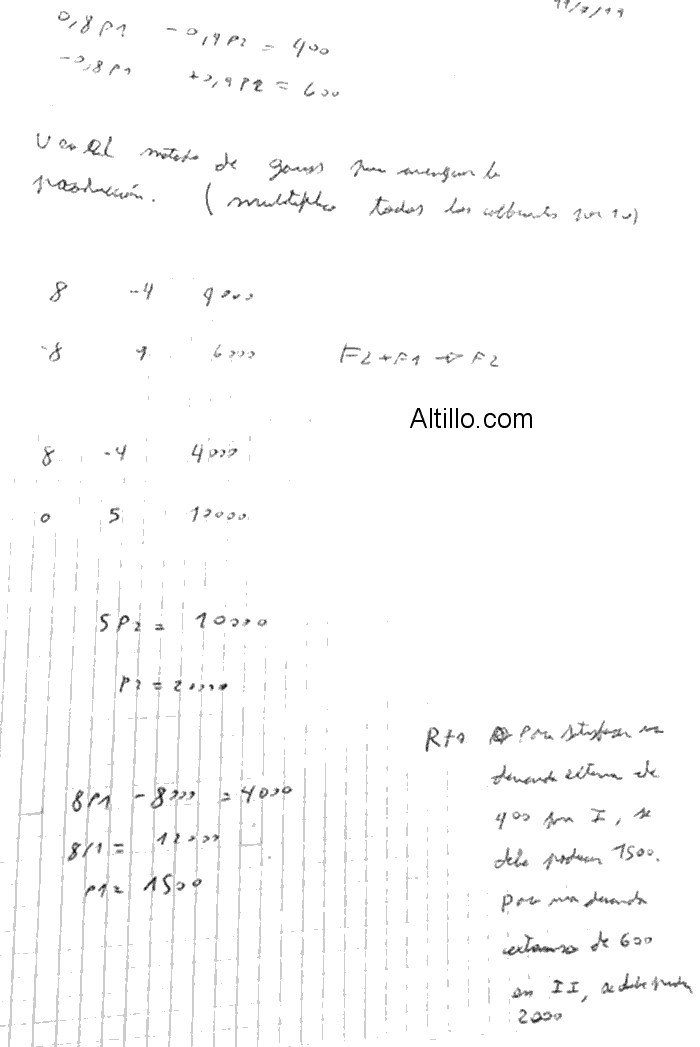 11/7/19
0,8P1 -0,4P2 = 400
-0,8P1 +0,9P2 = 600
Uso el metodo de gauss para averiguar la
producción. (multiplico todos los por 10)
8 -4 4000
-8 9 6000 F2+F1 → F2
Altillo.com
8 -4 4000
0 5 10000
5P2 = 10000
P2 = 2000
Rta Para satisfacer una
demanda externa de
8P1 - 8000 = 4000
400 para I, se
8P1 = 12000
debe producir 1500.
P1 = 1500
Para una demanda
externa de 600
en II, se debe producir
2000